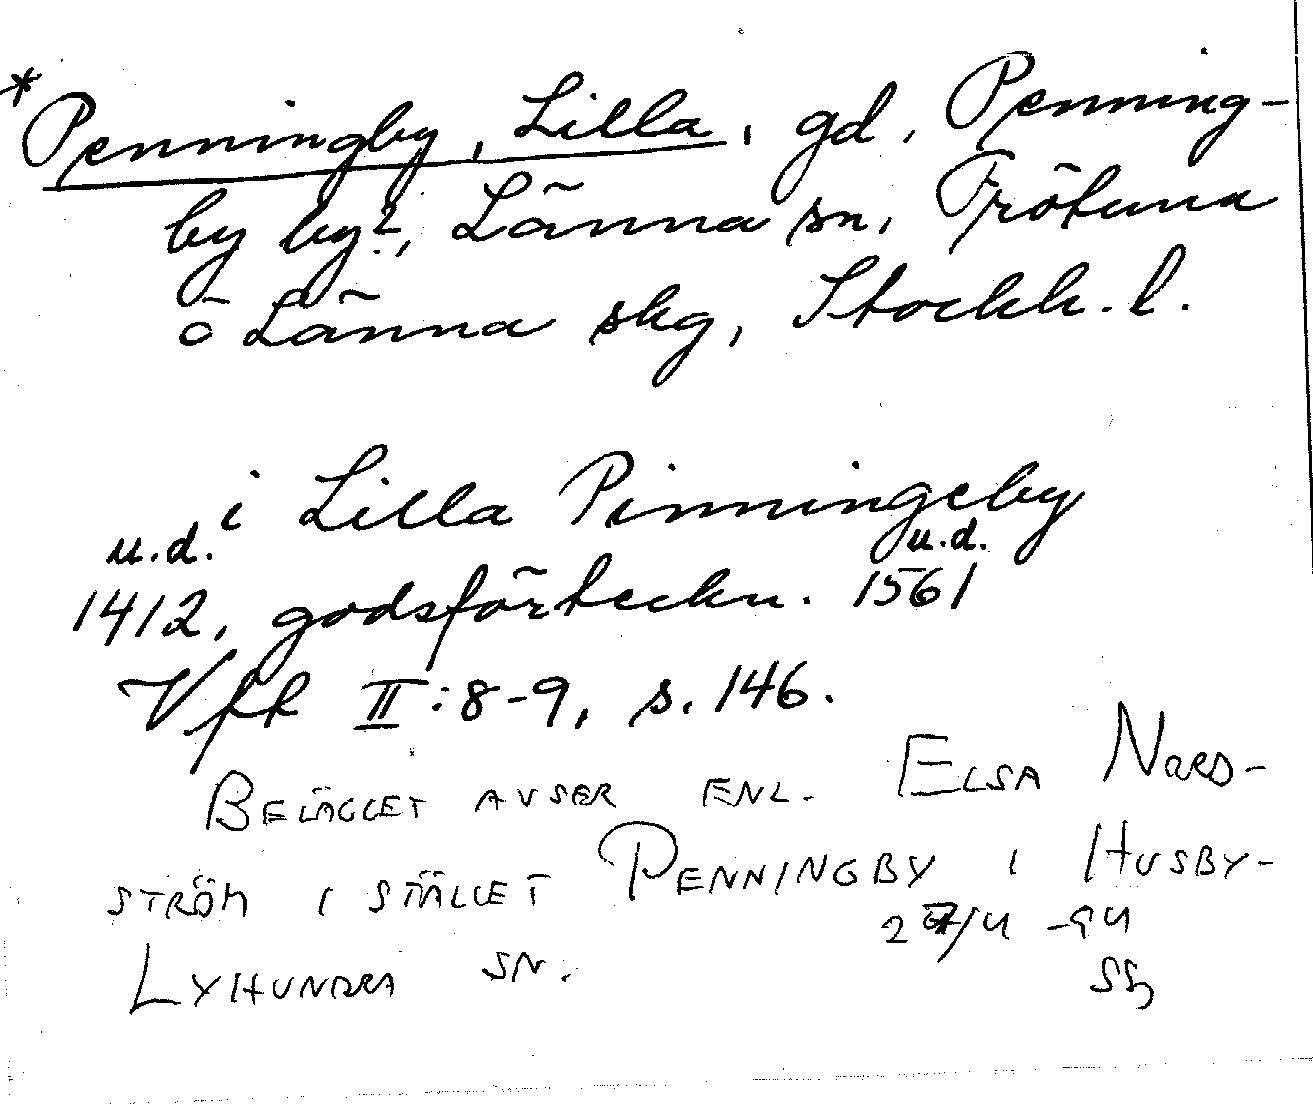 *Penningby, Lilla, gd, Penning-
by by?, Länna sn, Frötuna
o Länna skg, Stockh. l.
i Lilla Pinningeby
u.d. u.d.
1412, godsförteckn. 1561
Vfk II:8-9, s. 146.
BELÄGGET AVSER ENL. ELSA NORD-
STRÖM I STÄLLET PENNINGBY I HUSBY-
27/4 -94
LYHUNDRA SN.